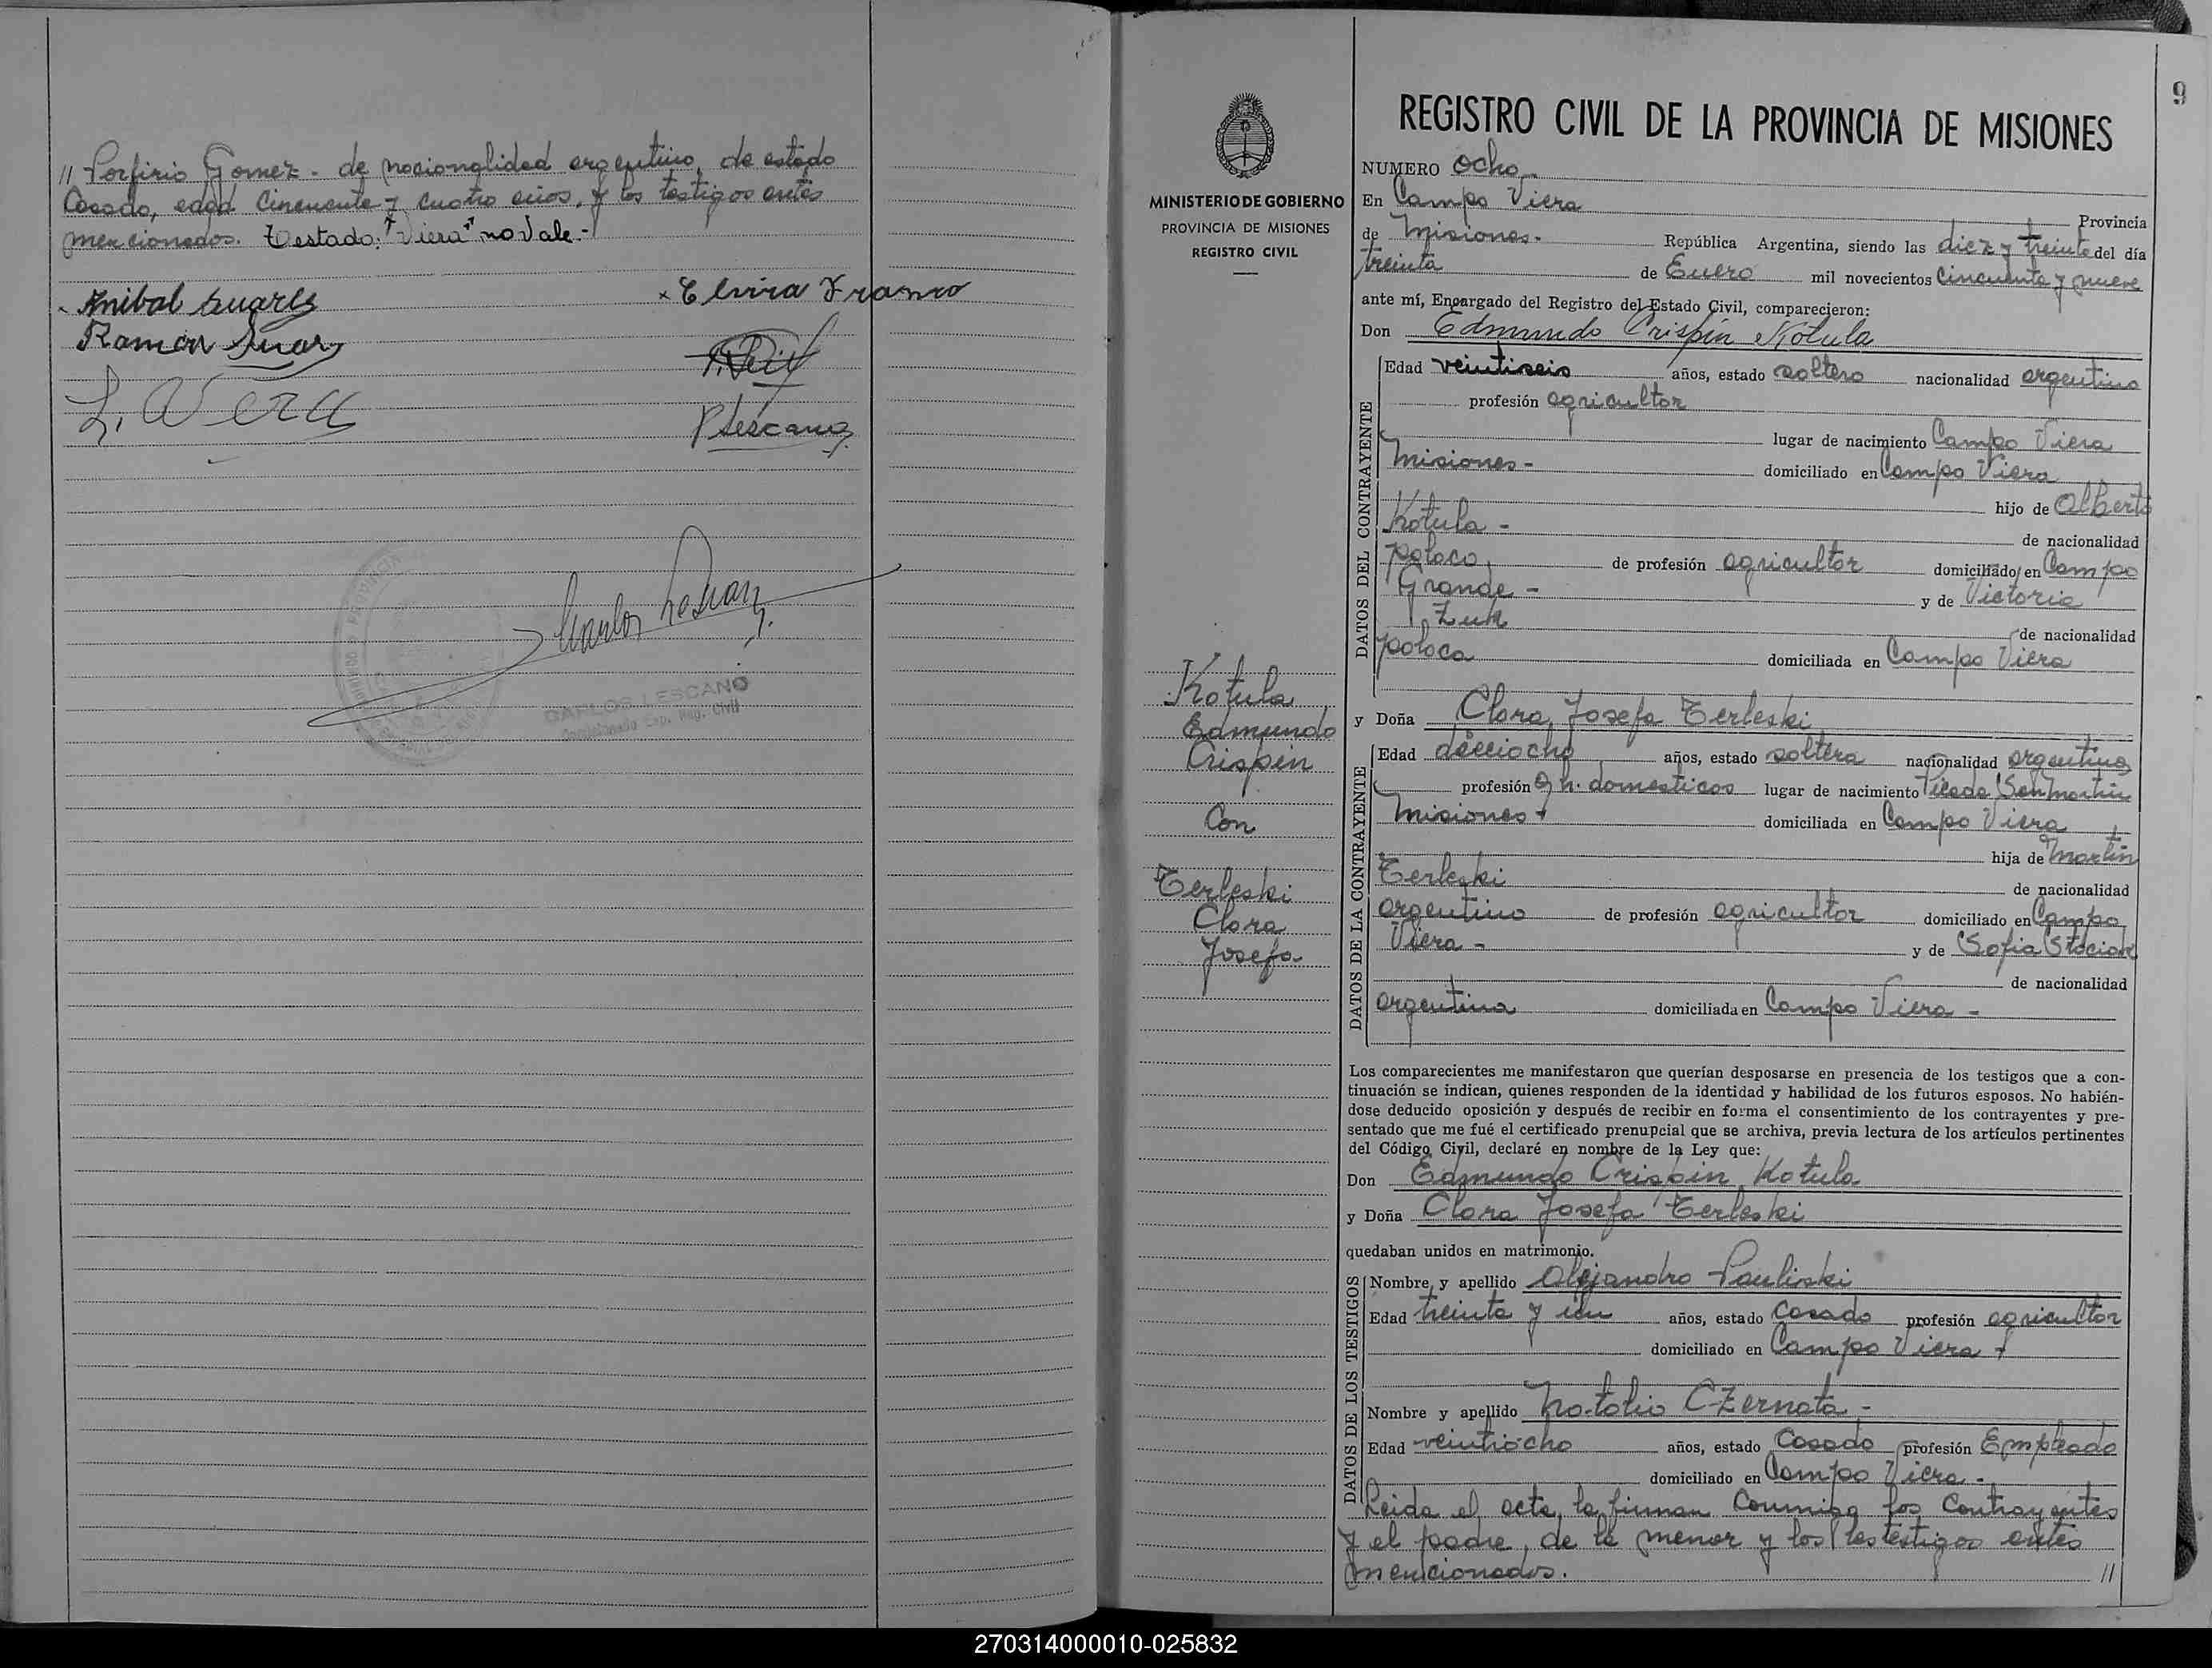 // Porfirio Gomez - de nacionalidad argentino, de estado
Casado, edad Cincuenta y cuatro años, y los testigos antes
mencionados. Testado: "Viera" no Vale.-
Anibal Suares
x Elvira Franco
Ramón Suarez
L. W Vera
P Lescano
Carlos Lescano
CARLOS LESCANO
Reg. Civil
9
MINISTERIO DE GOBIERNO
PROVINCIA DE MISIONES
REGISTRO CIVIL
Kotula
Edmundo
Crispin
Con
Terleski
Clara
Josefa
REGISTRO CIVIL DE LA PROVINCIA DE MISIONES
NUMERO Ocho
En Campo Viera Provincia
de Misiones.- República Argentina, siendo las diez y treinta del día
treinta de Enero mil novecientos cincuenta y nueve
ante mí, Encargado del Registro del Estado Civil, comparecieron:
Don Edmundo Crispín Kotula
DATOS DEL CONTRAYENTE
Edad veintiseis años, estado soltero nacionalidad argentino
profesión agricultor
lugar de nacimiento Campo Viera
Misiones- domiciliado en Campo Viera
hijo de Alberto
Kotula - de nacionalidad
polaco, de profesión agricultor domiciliado en Campo
Grande - y de Victoria
Zuk de nacionalidad
polaca domiciliada en Campo Viera
y Doña Clara Josefa Terleski
DATOS DE LA CONTRAYENTE
Edad dieciocho años, estado soltera nacionalidad argentina
profesión Q h. domesticos lugar de nacimiento Picada San Martin
Misiones domiciliada en Campo Viera
hija de Martín
Terleski de nacionalidad
argentino de profesión agricultor domiciliado en Campo
Viera - y de Sofia Stocian
de nacionalidad
argentina domiciliada en Campo Viera -
Los comparecientes me manifestaron que querían desposarse en presencia de los testigos que a con-
tinuación se indican, quienes responden de la identidad y habilidad de los futuros esposos. No habién-
dose deducido oposición y después de recibir en forma el consentimiento de los contrayentes y pre-
sentado que me fué el certificado prenupcial que se archiva, previa lectura de los artículos pertinentes
del Código Civil, declaré en nombre de la Ley que:
Don Edmundo Crispin Kotula
y Doña Clara Josefa Terleski
quedaban unidos en matrimonio.
DATOS DE LOS TESTIGOS
Nombre y apellido Alejandro Pauliski
Edad treinta y un años, estado Casado profesión agricultor
domiciliado en Campo Viera
Nombre y apellido Natalio Czernata -
Edad veintiocho años, estado Casado profesión Empleado
domiciliado en Campo Viera -
Leida el acta, la firman Conmigo los Contrayentes
y el padre, de la menor y los testigos antes
mencionados. //
270314000010-025832